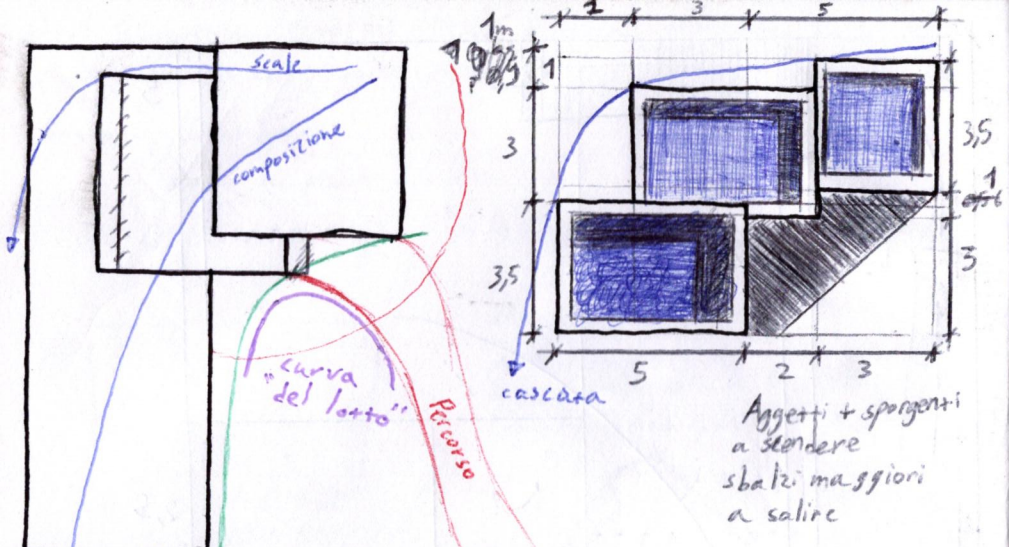 scale
composizione
"curva
del lotto"
Percorso
1m
1
3
5
1
3
3,5
3,5
1
3
5
2
3
cascata
Aggetti + sporgenti
a scendere
sbalzi maggiori
a salire